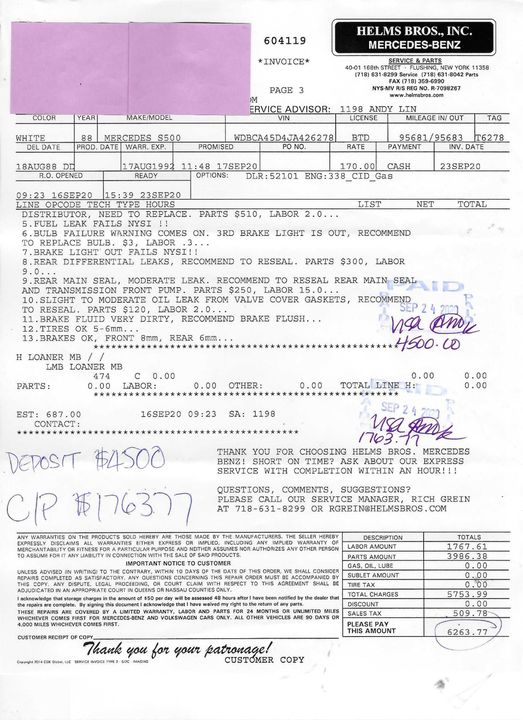 604119
HELMS BROS., INC.
MERCEDES-BENZ
*INVOICE*
SERVICE & PARTS
40-01 168th STREET · FLUSHING, NEW YORK 11358
(718) 631-8299 Service (718) 631-8042 Parts
FAX (718) 359-6990
NYS-MV R/S REG NO. R-7098267
www.helmsbros.com
PAGE 3
OM
ERVICE ADVISOR: 1198 ANDY LIN
COLOR YEAR MAKE/MODEL VIN LICENSE MILEAGE IN/ OUT TAG
WHITE 88 MERCEDES S500 WDBCA45D4JA426278 BTD 95681/95683 T6278
DEL DATE PROD. DATE WARR. EXP. PROMISED PO NO. RATE PAYMENT INV. DATE
18AUG88 DD 17AUG1992 11:48 17SEP20 170.00 CASH 23SEP20
R.O. OPENED READY OPTIONS: DLR:52101 ENG:338_CID_Gas
09:23 16SEP20 15:39 23SEP20
LINE OPCODE TECH TYPE HOURS LIST NET TOTAL
DISTRIBUTOR, NEED TO REPLACE. PARTS $510, LABOR 2.0...
5.FUEL LEAK FAILS NYSI !!
6.BULB FAILURE WARNING COMES ON. 3RD BRAKE LIGHT IS OUT, RECOMMEND
TO REPLACE BULB. $3, LABOR .3...
7.BRAKE LIGHT OUT FAILS NYSI!!
8.REAR DIFFERENTIAL LEAKS, RECOMMEND TO RESEAL. PARTS $300, LABOR
9.0...
9.REAR MAIN SEAL, MODERATE LEAK. RECOMMEND TO RESEAL REAR MAIN SEAL
AND TRANSMISSION FRONT PUMP. PARTS $250, LABOR 15.0...
10.SLIGHT TO MODERATE OIL LEAK FROM VALVE COVER GASKETS, RECOMMEND
TO RESEAL. PARTS $120, LABOR 2.0...
11.BRAKE FLUID VERY DIRTY, RECOMMEND BRAKE FLUSH...
12.TIRES OK 5-6mm...
13.BRAKES OK, FRONT 8mm, REAR 6mm...
PAID
SEP 24
Visa
4500.00
****************************************************
H LOANER MB / /
LMB LOANER MB
474 C 0.00 0.00 0.00
PARTS: 0.00 LABOR: 0.00 OTHER: 0.00 TOTAL LINE H: 0.00
****************************************************
SEP 24
Visa
1763.77
EST: 687.00 16SEP20 09:23 SA: 1198
CONTACT:
****************************************************
DEPOSIT $4500
C/P $1763.77
THANK YOU FOR CHOOSING HELMS BROS. MERCEDES
BENZ! SHORT ON TIME? ASK ABOUT OUR EXPRESS
SERVICE WITH COMPLETION WITHIN AN HOUR!!!
QUESTIONS, COMMENTS, SUGGESTIONS?
PLEASE CALL OUR SERVICE MANAGER, RICH GREIN
AT 718-631-8299 OR RGREIN@HELMSBROS.COM
ANY WARRANTIES ON THE PRODUCTS SOLD HEREBY ARE THOSE MADE BY THE MANUFACTURERS. THE SELLER HEREBY
EXPRESSLY DISCLAIMS ALL WARRANTIES EITHER EXPRESS OR IMPLIED, INCLUDING ANY IMPLIED WARRANTY OF
MERCHANTABILITY OR FITNESS FOR A PARTICULAR PURPOSE AND NEITHER ASSUMES NOR AUTHORIZES ANY OTHER PERSON
TO ASSUME FOR IT ANY LIABILITY IN CONNECTION WITH THE SALE OF SAID PRODUCTS.
IMPORTANT NOTICE TO CUSTOMER
UNLESS ADVISED (IN WRITING) TO THE CONTRARY, WITHIN 10 DAYS OF THE DATE OF THIS ORDER, WE SHALL CONSIDER
REPAIRS COMPLETED AS SATISFACTORY. ANY QUESTIONS CONCERNING THIS REPAIR ORDER MUST BE ACCOMPANIED BY
THIS COPY. ANY DISPUTE, LEGAL PROCEEDING, OR COURT CLAIM WITH RESPECT TO THIS AGREEMENT SHALL BE
ADJUDICATED IN AN APPROPRIATE COURT IN QUEENS OR NASSAU COUNTIES ONLY.
I acknowledge that storage charges in the amount of $50 per day will be assessed 48 hours after I have been notified by the dealer that
the repairs are complete. By signing this document I acknowledge that I have waived my right to the return of any parts.
THESE REPAIRS ARE COVERED BY A LIMITED WARRANTY, LABOR AND PARTS FOR 24 MONTHS OR UNLIMITED MILES
WHICHEVER COMES FIRST FOR MERCEDES-BENZ AND VOLKSWAGEN CARS ONLY. ALL OTHER VEHICLES ARE 90 DAYS OR
4,000 MILES WHICHEVER COMES FIRST.
CUSTOMER RECEIPT OF COPY
DESCRIPTION TOTALS
LABOR AMOUNT 1767.61
PARTS AMOUNT 3986.38
GAS, OIL, LUBE 0.00
SUBLET AMOUNT 0.00
TIRE TAX 0.00
TOTAL CHARGES 5753.99
DISCOUNT 0.00
SALES TAX 509.78
PLEASE PAY
THIS AMOUNT 6263.77
Thank you for your patronage!
CUSTOMER COPY
Copyright 2014 CDK Global, LLC SERVICE INVOICE TYPE 2 S/2C IMAGING